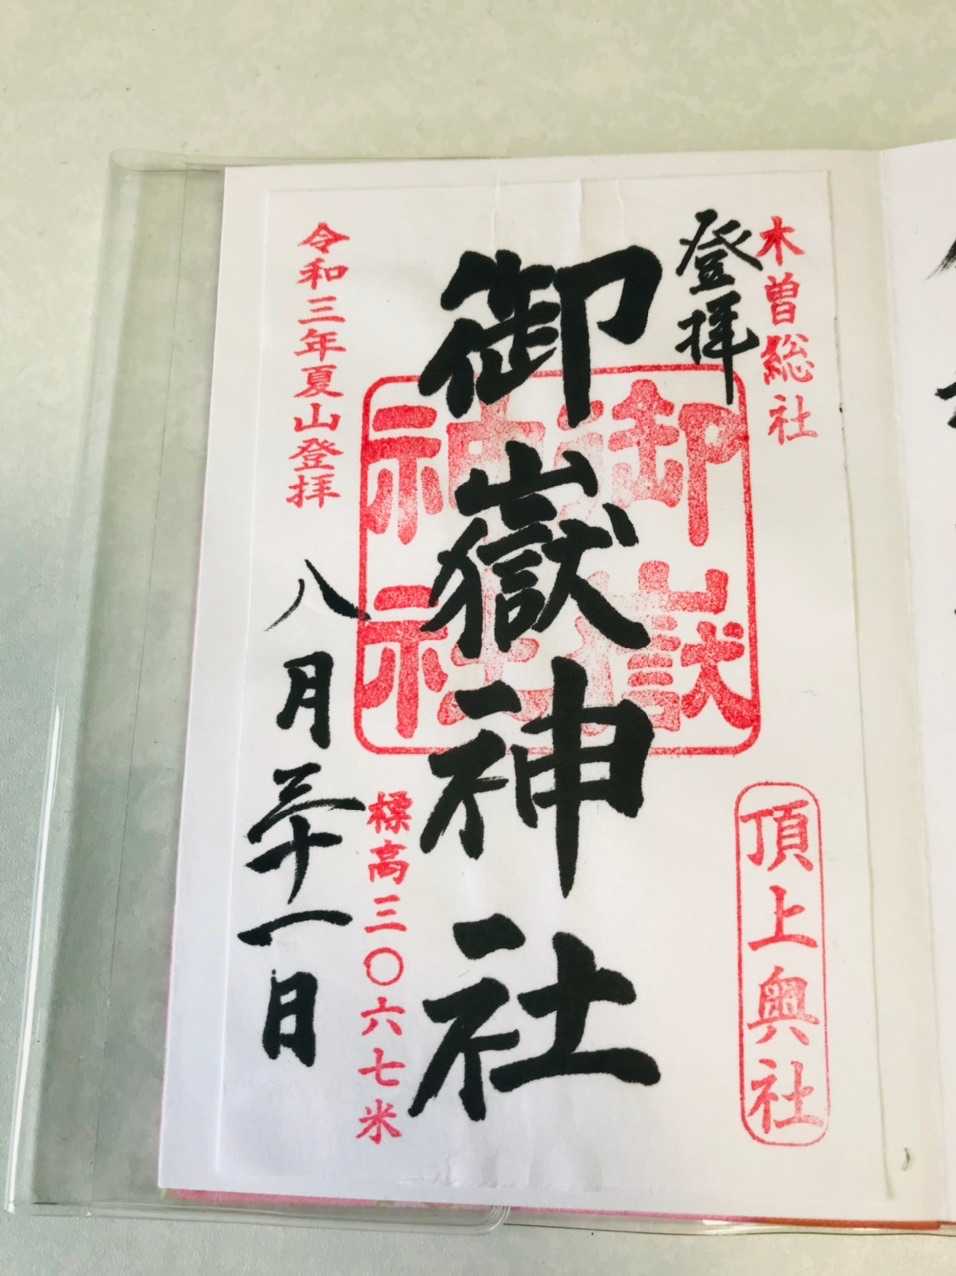 木曽総社
登拝
頂上奥社
御嶽神社
御嶽
神社
標高三〇六七米
令和三年夏山登拝
八月三十一日